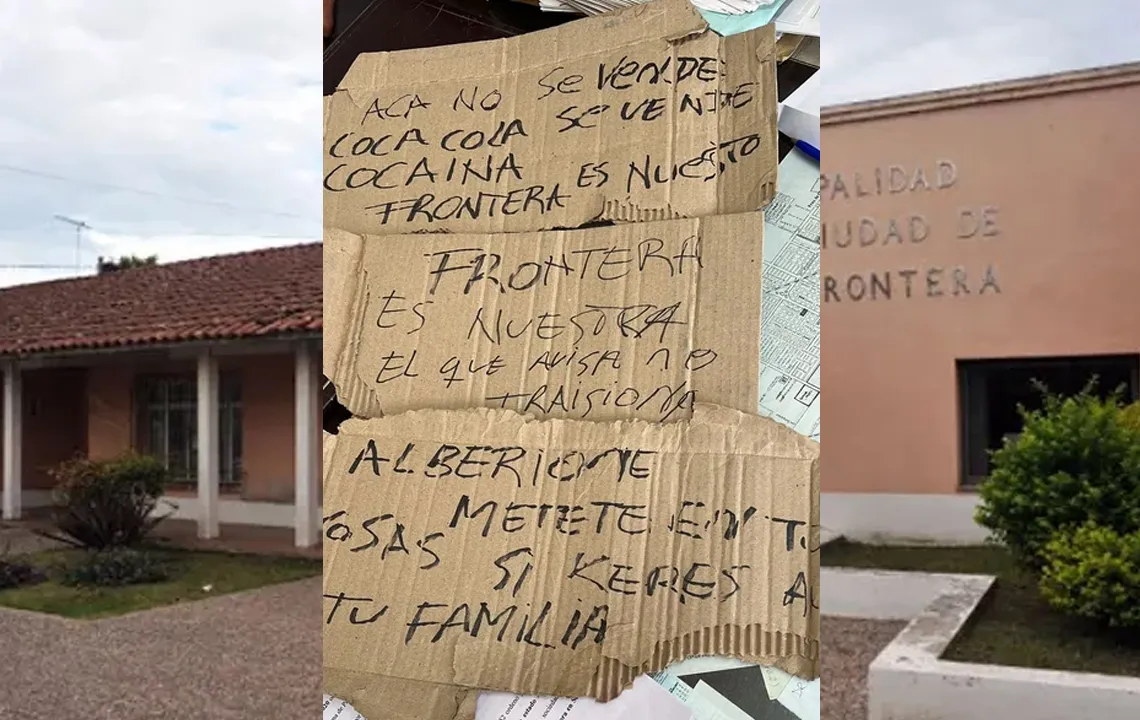 ACA NO Se VENDE
COCA COLA SE VENDE
COCAINA
FRONTERA ES NUESTO
FRONTERA
ES NUESTRA
EL QUE AVISA NO
TRAISIONA
ALBERIONE
METETE EN T
OSAS SI KERES A
TU FAMILIA
PALIDAD
IUDAD DE
RONTERA